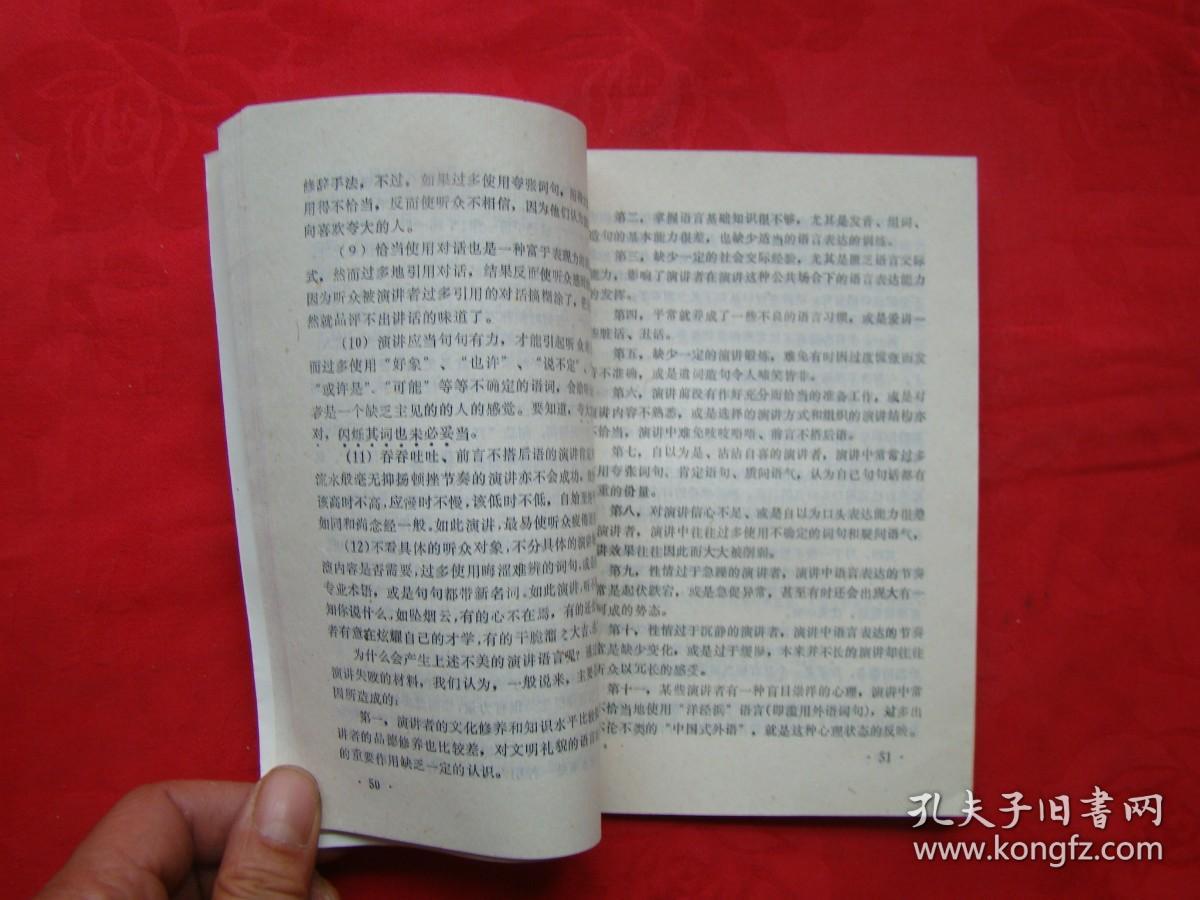 修辞手法，不过，如果过多使用夸张词句，
用得不恰当，反而使听众不相信，因为他们认为
向喜欢夸大的人。
（9）恰当使用对话也是一种富于表现力的
式，然而过多地引用对话，结果反而使听众感
因为听众被演讲者过多引用的对话搞糊涂了，
然就品评不出讲话的味道了。
（10）演讲应当句句有力，才能引起听众
而过多使用“好象”、“也许”、“说不定”、
“或许是”、“可能”等等不确定的语词，会给
者是一个缺乏主见的的人的感觉。要知道，
对，闪烁其词也未必妥当。
（11）吞吞吐吐、前言不搭后语的演讲
流水般毫无抑扬顿挫节奏的演讲亦不会成功，
该高时不高，应慢时不慢，该低时不低，自始至
如同和尚念经一般。如此演讲，最易使听众疲倦
（12）不看具体的听众对象，不分具体的演
演内容是否需要，过多使用晦涩难辨的词句，或
专业术语，或是句句都带新名词。如此演讲，听
知你说什么，如坠烟云，有的心不在焉，有的还
者有意在炫耀自己的才学，有的干脆溜之大吉。
为什么会产生上述不美的演讲语言呢？
演讲失败的材料，我们认为，一般说来，主要
因所造成的：
第一，演讲者的文化修养和知识水平比较
讲者的品德修养也比较差，对文明礼貌的语言
的重要作用缺乏一定的认识。
· 50 ·
第二，掌握语言基础知识很不够，尤其是发音、组词、
造句的基本能力很差，也缺少适当的语言表达的训练。
第三，缺少一定的社会交际经验，尤其是匮乏语言交际
能力，影响了演讲者在演讲这种公共场合下的语言表达能力
的发挥。
第四，平常就养成了一些不良的语言习惯，或是爱讲一
些脏话、丑话。
第五，缺少一定的演讲锻炼，难免有时因过度紧张而发
音不准确，或是遣词造句令人啼笑皆非。
第六，演讲前没有作好充分而恰当的准备工作，或是对
讲内容不熟悉，或是选择的演讲方式和组织的演讲结构亦
不恰当，演讲中难免吱吱唔唔、前言不搭后语。
第七，自以为是、沾沾自喜的演讲者，演讲中常常过多
用夸张词句、肯定语句、质问语气，认为自己句句话都有
重的份量。
第八，对演讲信心不足、或是自以为口头表达能力很差
演讲者，演讲中往往过多使用不确定的词句和疑问语气，
讲效果往往因此而大大被削弱。
第九，性情过于急躁的演讲者，演讲中语言表达的节奏
常是起伏跌宕，或是急促异常，甚至有时还会出现大有一
可成的势态。
第十，性情过于沉静的演讲者，演讲中语言表达的节奏
是缺少变化，或是过于缓慢，本来并不长的演讲却往往
听众以冗长的感受。
第十一，某些演讲者有一种盲目崇洋的心理，演讲中常
不恰当地使用“洋经浜”语言（即滥用外语词句），对多出
不伦不类的“中国式外语”，就是这种心理状态的反映。
· 51 ·
孔夫子旧书网
www.kongfz.com